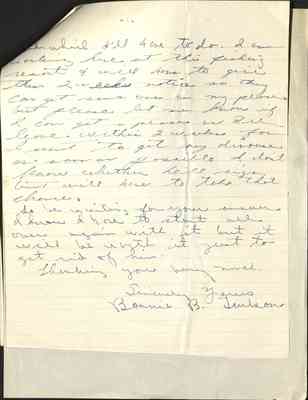 will have to do. I am
working here at this fishing
resort & will have to give
them 2 weeks notice so they
can get some one in my place
but please let me know if
I can get a divorce in
2 weeks for
I want to get my divorce
as soon as possible I don't
know whether he'll sign
but will have to take that
chance.
So be waiting for your answer
I know I have to start all
over again with it but it
will be worth it just to
get rid of him.
Thanking you very much.
Sincerely Yours
Bonnie B.